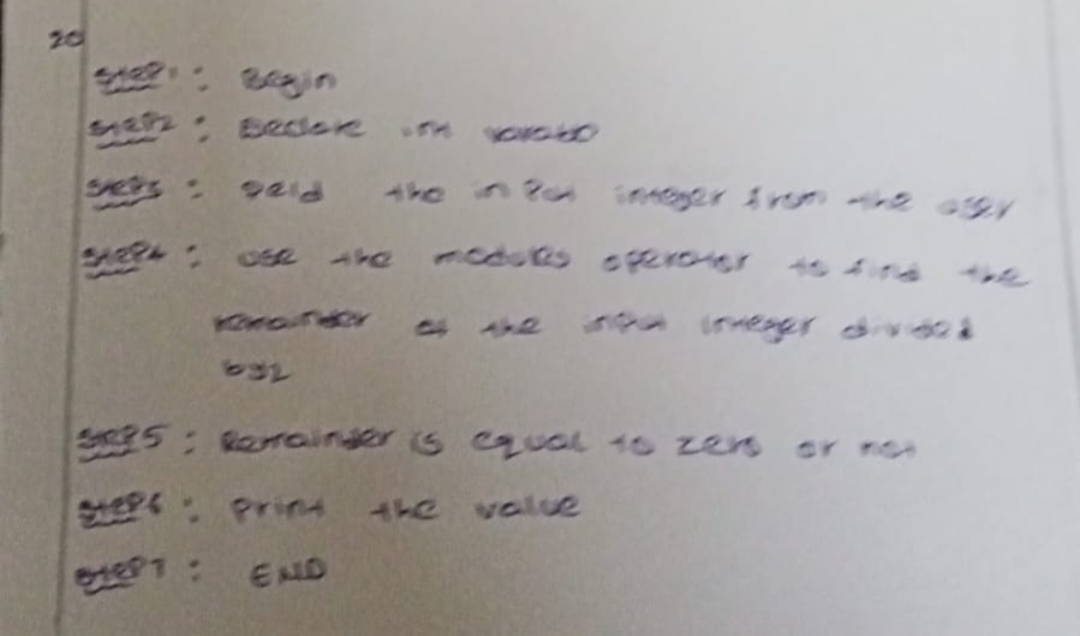 20
Step1: Begin
Step2: Declare int
Step3: Reld the in Put integer from the user
Step4: use the modules operator to find the
remainder of the input integer divided
by 2
Step5: Remainder is equal to zero or not
Step6: Print the value
Step7: END